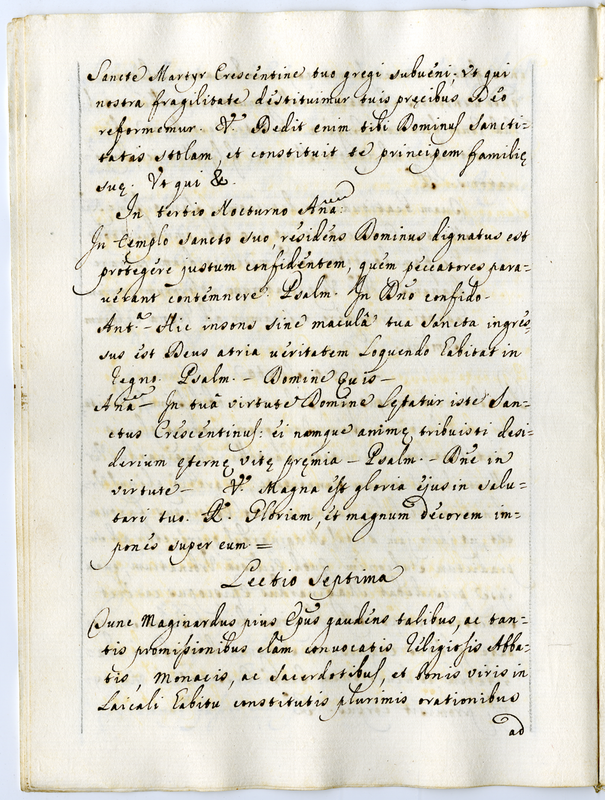 Sancte Martyr Crescentine tuo gregi subueni; Vt qui
nostra fragilitate destituimur tuis precibus Deo
reformemur. V. Dedit enim tibi Dominus sancti=
tatis stolam, et constituit te principem familię
suę. Vt qui &.
In tertio Nocturno Ana:
In Templo sancto suo, residens Dominus dignatus est
protegere justum confidentem, quem peccatores para=
verant contemnere. Psalm. In Dño confido.
Ant.a – Hic insons sine maculâ tua sancta ingres=
sus est Deus atria veritatem loquendo habitat in
regno. Psalm. – Domine Quis –
Ana – In tuâ virtute Domine lętatur iste San=
ctus Crescentinus: ei namque animę tribuisti desi=
derium ęternę vitę pręmia – Psalm. – Dñe in
virtute – V. Magna est gloria ejus in salu=
tari tuo. R. Gloriam, et magnum decorem im=
pones super eum =
Lectio Septima
Tunc Maginardus pius Epus gaudens talibus, ac tan=
tis promissionibus clàm convocatis Religiosis Abba=
tis, Monacis, ac Sacerdotibus, et bonis viris in
Laicali habitu constitutis plurimis orationibus
ad